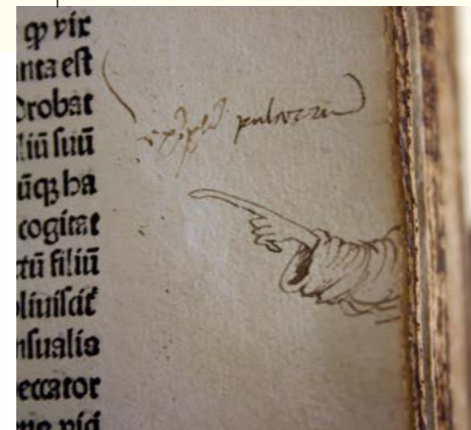 ꝙ vir
nta est
Probat
liū suū
ūq; ha
cogitat
ctū filiū
bliuiscit̄
nsualis
peccator
pulcerru